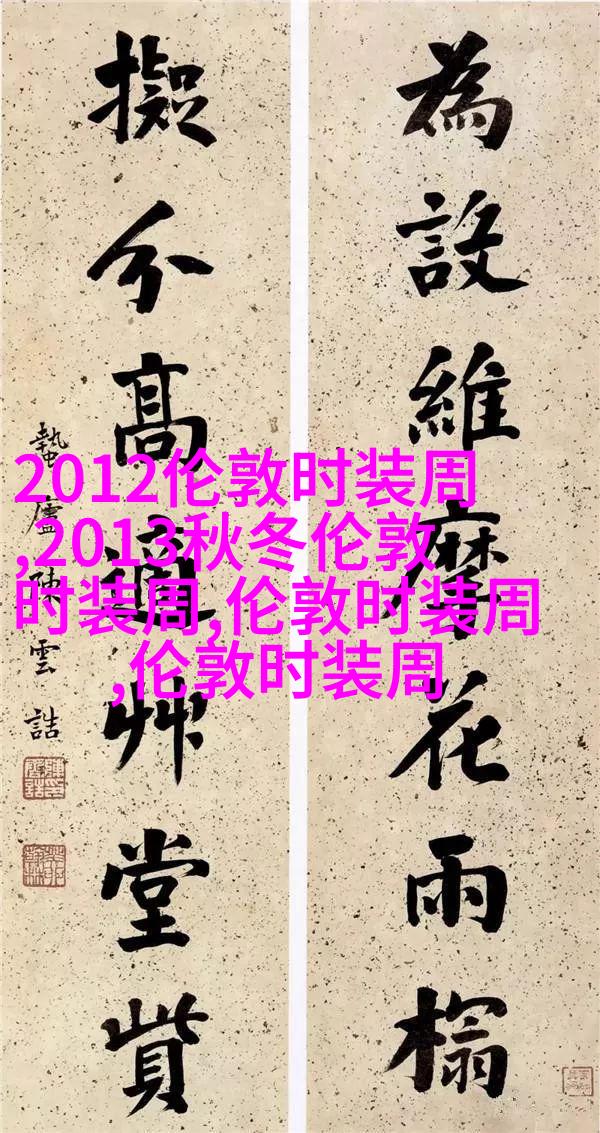 為設維摩花雨榻
擬分高適艸堂貲
蟄廬陳雲誥
2012伦敦时装周
,2013秋冬伦敦
时装周,伦敦时装周
,伦敦时装周